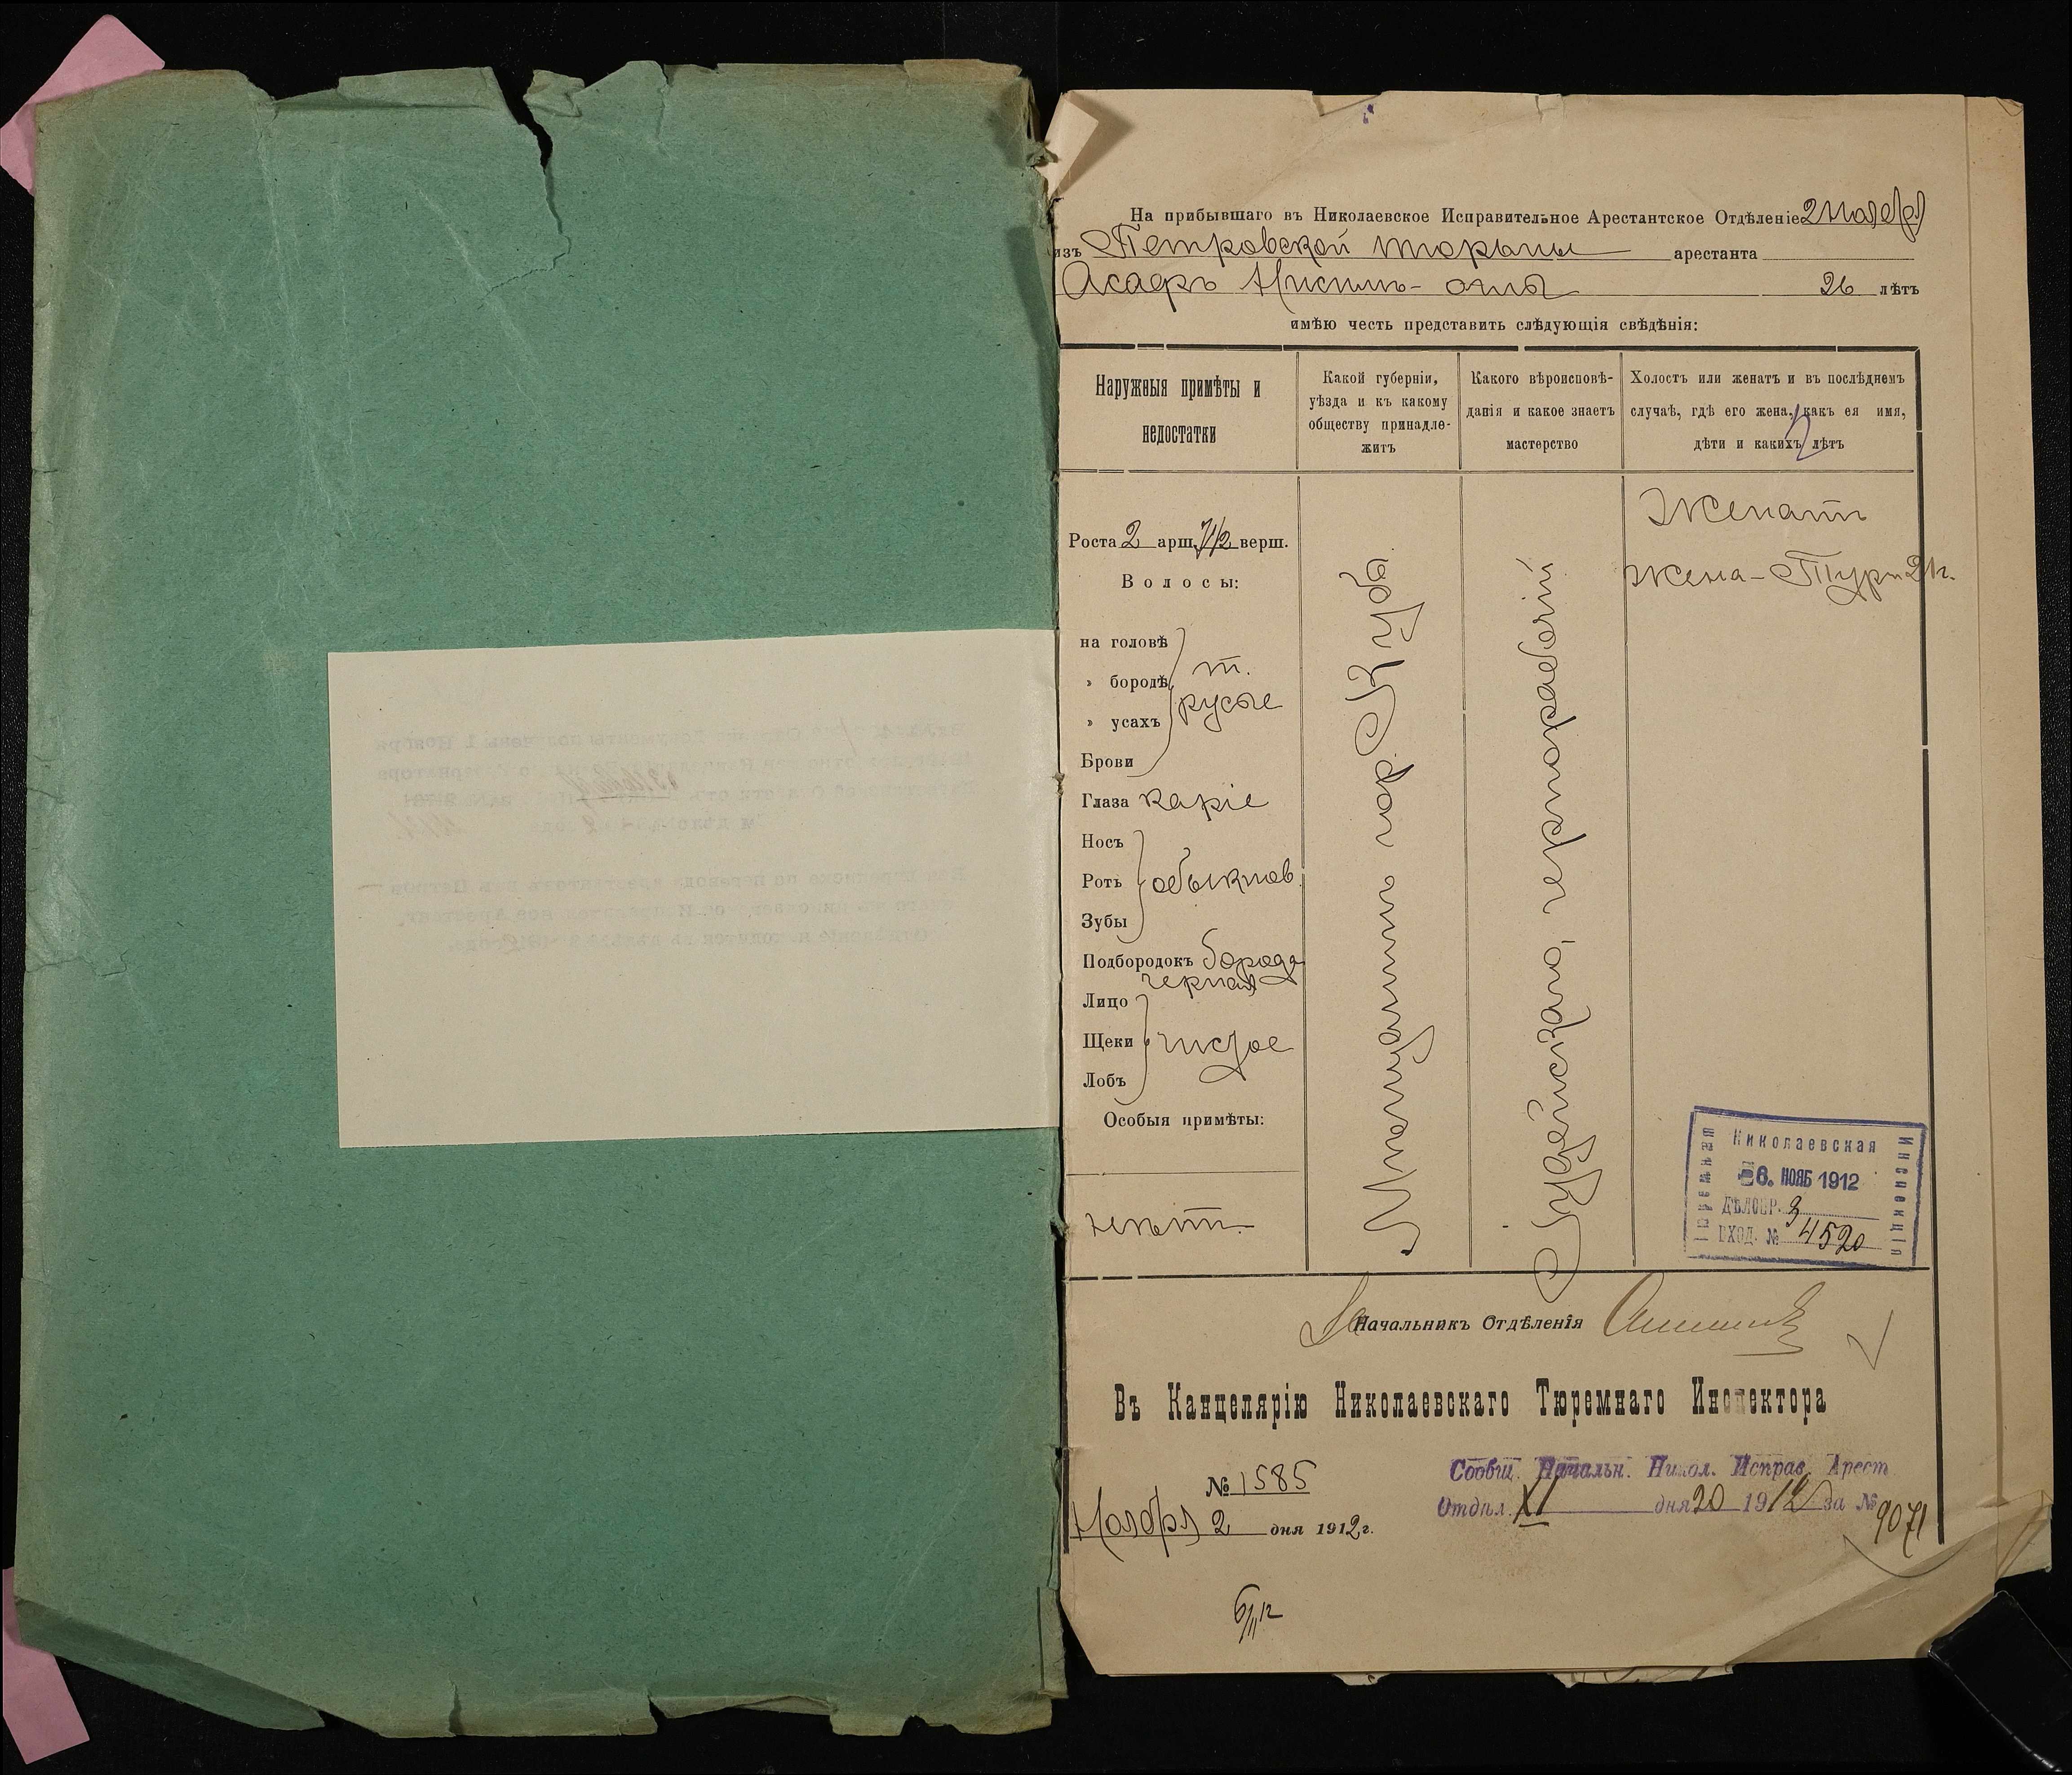 На прибывшаго въ Николаевское Исправительное Арестантское Отдѣленіе 2 ноября
изъ Петровской тюрьмы арестанта
Асафъ Нисимъ-оглы 26 лѣтъ
имѣю честь представить слѣдующія свѣдѣнія:
Наружныя примѣты и
недостатки
Какой губерніи,
уѣзда и къ какому
обществу принадле-
житъ
Какого вѣроисповѣ-
данія и какое знаетъ
мастерство
Холостъ или женатъ и въ послѣднемъ
случаѣ, гдѣ его жена, какъ ея имя,
дѣти и какихъ лѣтъ
Роста 2 арш. 7 1/2 верш.
Волосы:
на головѣ
» бородѣ
» усахъ
Брови
т.
русые
Глаза каріе
Носъ
Ротъ
Зубы
обыкнов.
Подбородокъ борода
черная
Лицо
Щеки
Лобъ
чистое
Особыя примѣты:
нѣтъ
Мѣщанинъ гор. Куба
Іудейскаго, чернорабочій
Женатъ
жена - 21 г.
Николаевская
Тюремная
Инспекція
6. НОЯБ 1912
ДѢЛОПР. 3
ВХОД. № 4520
За Начальникъ Отдѣленія
Въ Канцелярію Николаевскаго Тюремнаго Инспектора
№ 1585
Ноября 2 дня 1912 г.
Сообщ. Начальн. Никол. Исправ. Арест
Отдѣл. XI дня 20 1912 за №
9071
6/11 12